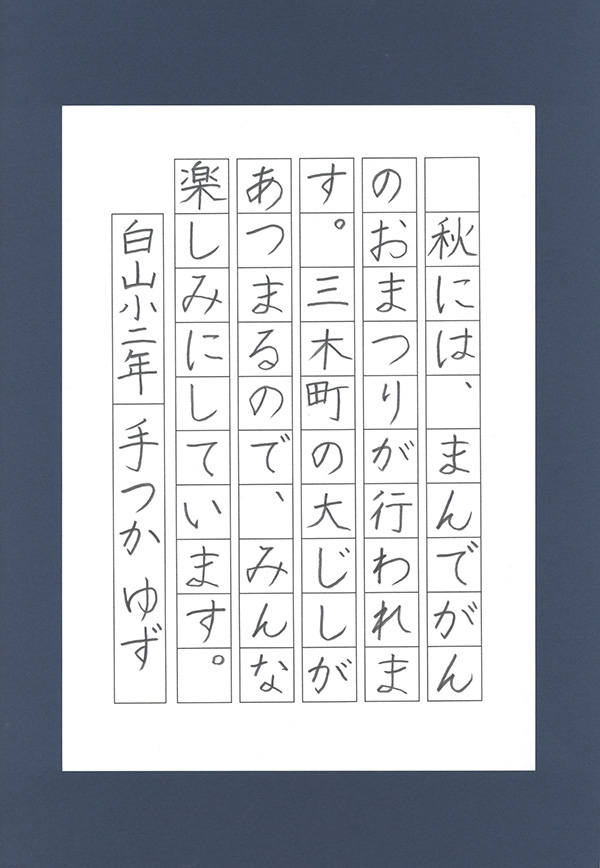 秋には、まんでがん
のおまつりが行われま
す。三木町の大じしが
あつまるので、みんな
楽しみにしています。
白山小二年 手つか ゆず